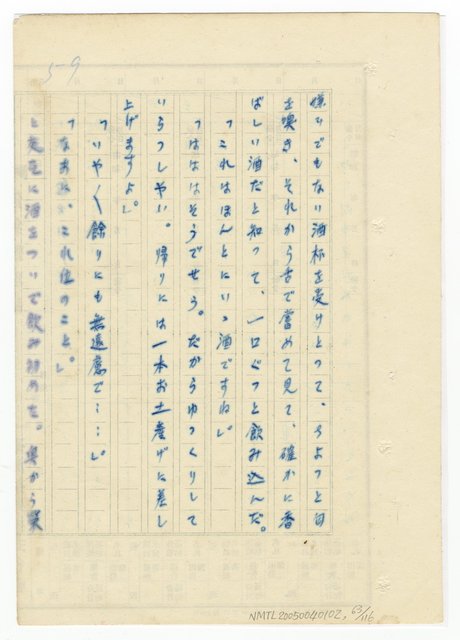 嫌ひでもない酒杯を受けとって、ちょっと匂
を嗅ぎ、それから舌で嘗めて見て、確かに香
ばしい酒だと知って、一口ぐっと飲み込んだ。
「これはほんとにいゝ酒ですね」。
「はははそうでせう。だからゆっくりして
いらつしやい。帰りには一本お土産げに差し
上げますよ」。
「いや〱餘りにも無遠慮で‥‥」。
「なあに、これ位のこと」。
と 酒をついで飲み初めた。奥から
5-9
NMTL20050040102, 63/116